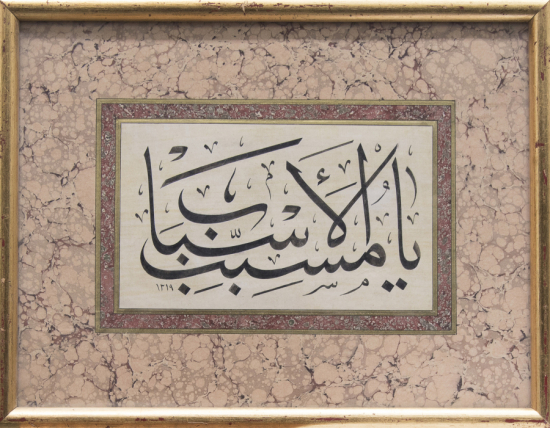 يا مسبب الأسباب
١٣١٩